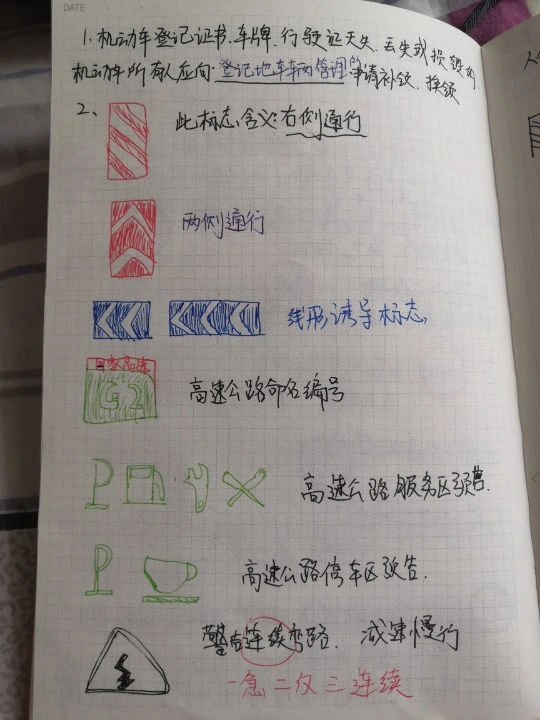 DATE
1. 机动车登记证书、车牌、行驶证灭失、丢失或损毁的,
机动车所有人应向登记地车辆管理所申请补领、换领
2、
此标志含义:右侧通行
两侧通行
线形诱导标志
国家高速
G2
高速公路命名编号
P
高速公路服务区预告.
P
高速公路停车区预告.
警告连续弯路. 减速慢行
一急二反三连续